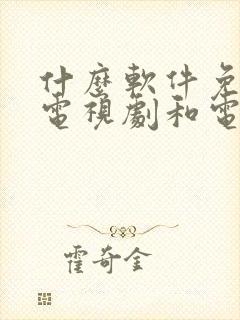 什麼軟件免
電視劇和電
霍奇金